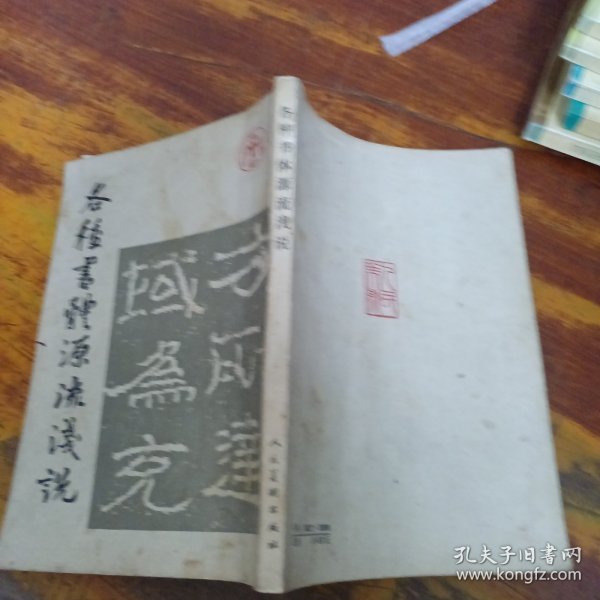 各種書體源流淺説
域為兗
方所達
各种书体源流浅说
人民美术出版社
人民美术
孔夫子旧书网
www.kongfz.com